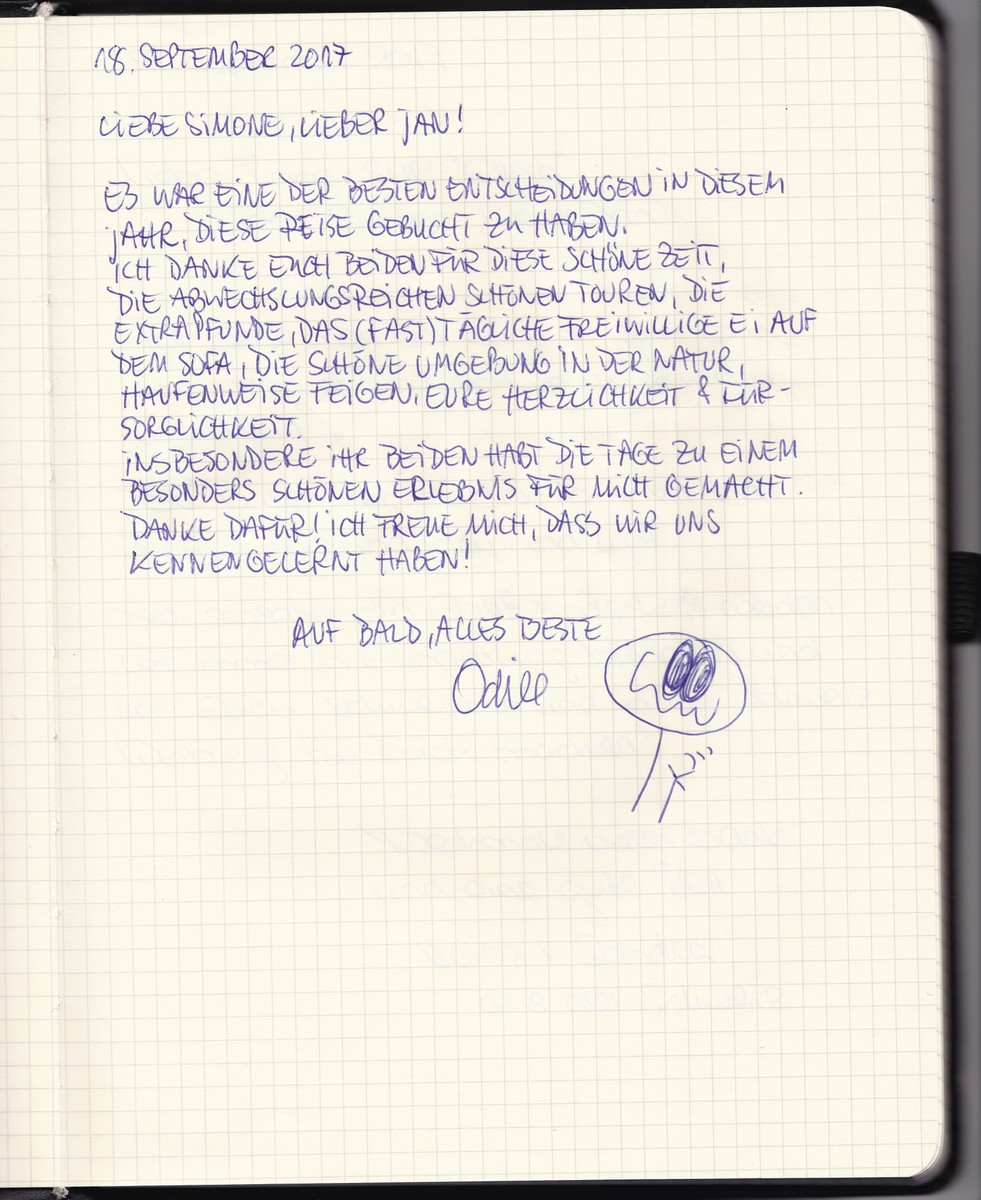 18. SEPTEMBER 2017
LIEBE SIMONE, LIEBER JAN!
ES WAR EINE DER BESTEN ENTSCHEIDUNGEN IN DIESEM
JAHR, DIESE REISE GEBUCHT ZU HABEN.
ICH DANKE EUCH BEIDEN FÜR DIESE SCHÖNE ZEIT,
DIE ABWECHSLUNGSREICHEN SCHÖNEN TOUREN, DIE
EXTRAPFUNDE, DAS (FAST) TÄGLICHE FREIWILLIGE EI AUF
DEM SOFA, DIE SCHÖNE UMGEBUNG IN DER NATUR,
HAUFENWEISE FEIGEN, EURE HERZLICHKEIT & FÜR-
SORGLICHKEIT.
INSBESONDERE IHR BEIDEN HABT DIE TAGE ZU EINEM
BESONDERS SCHÖNEN ERLEBNIS FÜR MICH GEMACHT.
DANKE DAFÜR! ICH FREUE MICH, DASS WIR UNS
KENNENGELERNT HABEN!
AUF BALD, ALLES BESTE
Odile